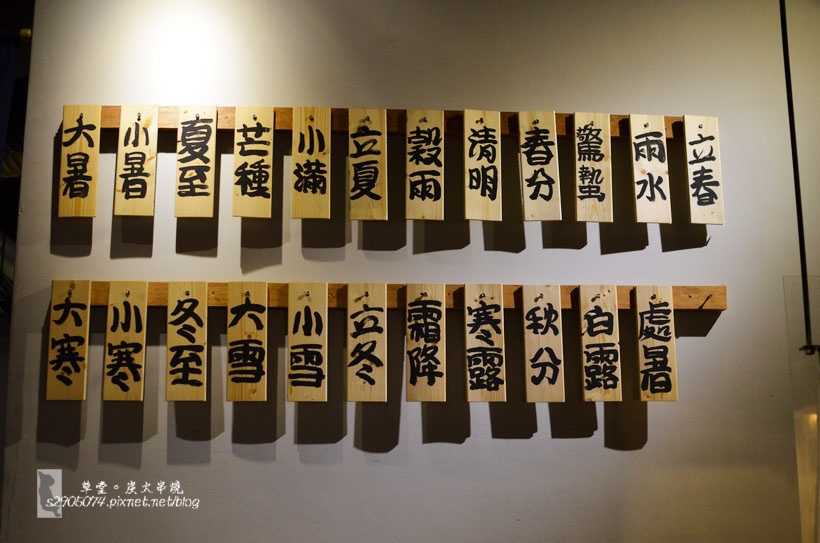 立春
雨水
驚蟄
春分
清明
穀雨
立夏
小滿
芒種
夏至
小暑
大暑
處暑
白露
秋分
寒露
霜降
立冬
小雪
大雪
冬至
小寒
大寒
草堂。炭火串燒
s2905074.pixnet.net/blog